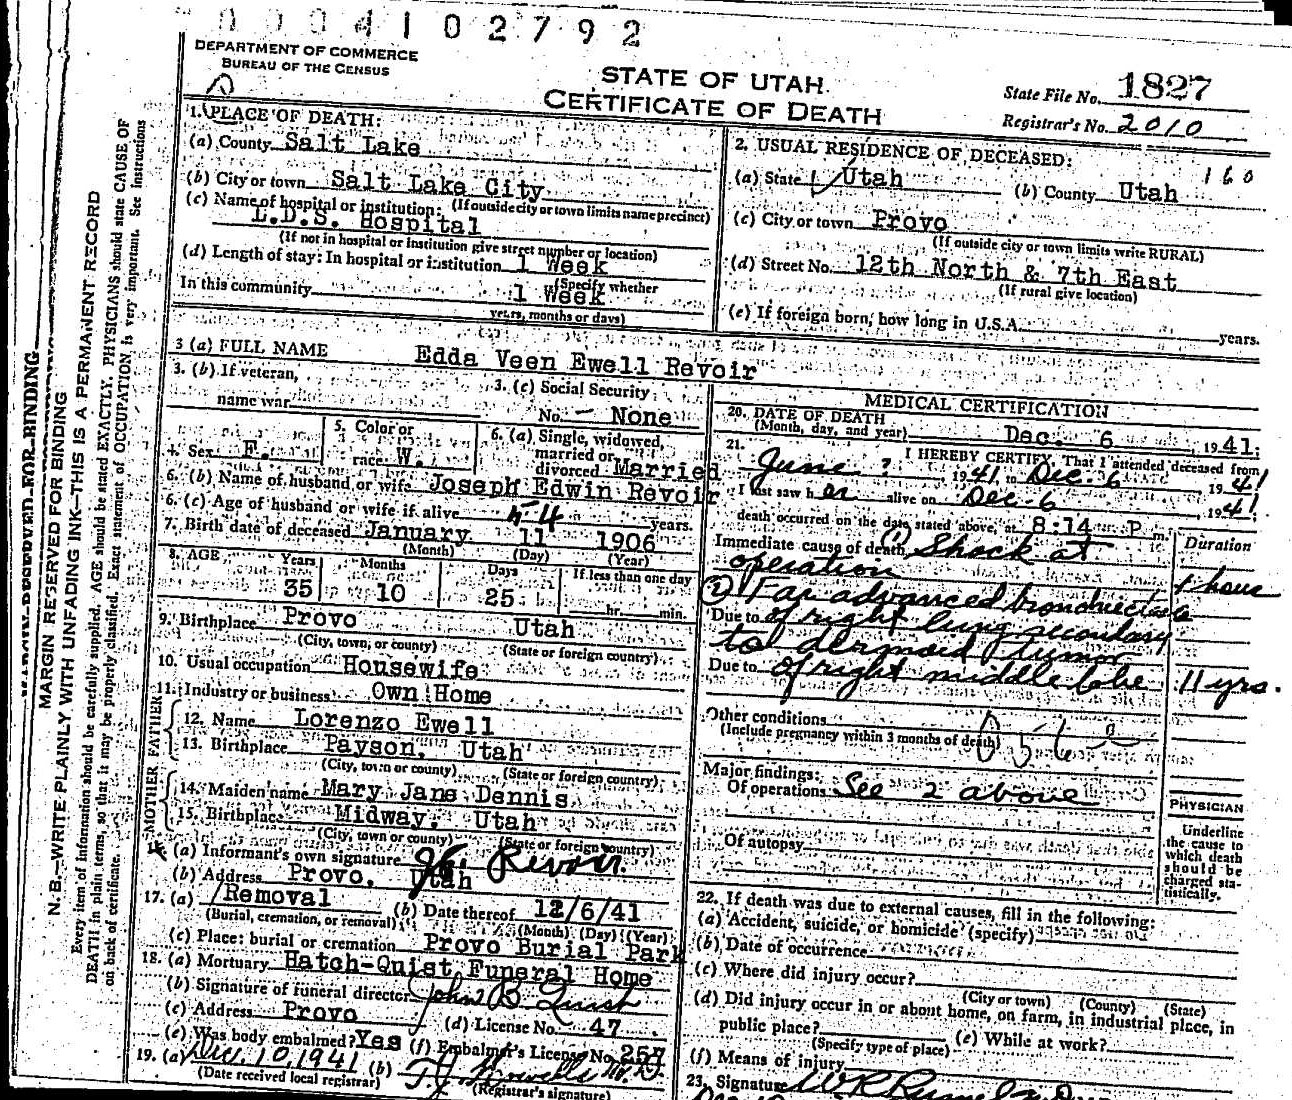 0004102792
DEPARTMENT OF COMMERCE
BUREAU OF THE CENSUS
STATE OF UTAH
CERTIFICATE OF DEATH
State File No. 1827
Registrar's No. 2010
1. PLACE OF DEATH:
(a) County Salt Lake
(b) City or town Salt Lake City
(If outside city or town limits name precinct)
(c) Name of hospital or institution:
L.D.S. Hospital
(If not in hospital or institution give street number or location)
(d) Length of stay: In hospital or institution 1 Week
(Specify whether
In this community 1 Week
years, months or days)
2. USUAL RESIDENCE OF DECEASED:
160
(a) State Utah (b) County Utah
(c) City or town Provo
(If outside city or town limits write RURAL)
(d) Street No. 12th North & 7th East
(If rural give location)
(e) If foreign born, how long in U.S.A. years.
3 (a) FULL NAME Edda Veen Ewell Revoir
3. (b) If veteran,
name war
3. (c) Social Security
No. - None
4. Sex F.
5. Color or
race W.
6. (a) Single, widowed,
married or
divorced Married
6. (b) Name of husband or wife Joseph Edwin Revoir
6. (c) Age of husband or wife if alive 54 years.
7. Birth date of deceased January 11 1906
(Month) (Day) (Year)
8. AGE Years Months Days If less than one day
35 10 25 hr. min.
9. Birthplace Provo Utah
(City, town, or county) (State or foreign country)
10. Usual occupation Housewife
11. Industry or business Own Home
FATHER
12. Name Lorenzo Ewell
13. Birthplace Payson, Utah
(City, town or county) (State or foreign country)
MOTHER
14. Maiden name Mary Jane Dennis
15. Birthplace Midway, Utah
(City, town or county) (State or foreign country)
(a) Informant's own signature J.E. Revoir
(b) Address Provo, Utah
17. (a) Removal (b) Date thereof 12/6/41
(Burial, cremation, or removal) (Month) (Day) (Year)
(c) Place: burial or cremation Provo Burial Park
18. (a) Mortuary Hatch-Quist Funeral Home
(b) Signature of funeral director John B Quist
(c) Address Provo (d) License No. 47
(e) Was body embalmed? Yes (f) Embalmer's License No. 257
19. (a) Dec. 10, 1941 (b)
(Date received local registrar) (Registrar's signature)
MEDICAL CERTIFICATION
20. DATE OF DEATH
(Month, day, and year) Dec. 6, 1941
21. I HEREBY CERTIFY, That I attended deceased from
June ? 1941, to Dec. 6, 1941
I last saw her alive on Dec. 6, 1941
death occurred on the date stated above, at 8:14 P m.
Duration
Immediate cause of death (1) Shock at
operation 1 hour
(2) Far advanced bronchiectasis
Due to of right lung secondary
to dermoid tumor
Due to of right middle lobe 11 yrs.
Other conditions
(Include pregnancy within 3 months of death)
Major findings:
Of operations See 2 above
Of autopsy
PHYSICIAN
Underline
the cause to
which death
should be
charged sta-
tistically.
22. If death was due to external causes, fill in the following:
(a) Accident, suicide, or homicide (specify)
(b) Date of occurrence
(c) Where did injury occur?
(City or town) (County) (State)
(d) Did injury occur in or about home, on farm, in industrial place, in
public place? (e) While at work?
(Specify type of place)
(f) Means of injury
23. Signature
MARGIN RESERVED FOR BINDING
N. B.—WRITE PLAINLY WITH UNFADING INK—THIS IS A PERMANENT RECORD
Every item of information should be carefully supplied. AGE should be stated EXACTLY. PHYSICIANS should state CAUSE OF
DEATH in plain terms, so that it may be properly classified. Exact statement of OCCUPATION is very important. See instructions
on back of certificate.